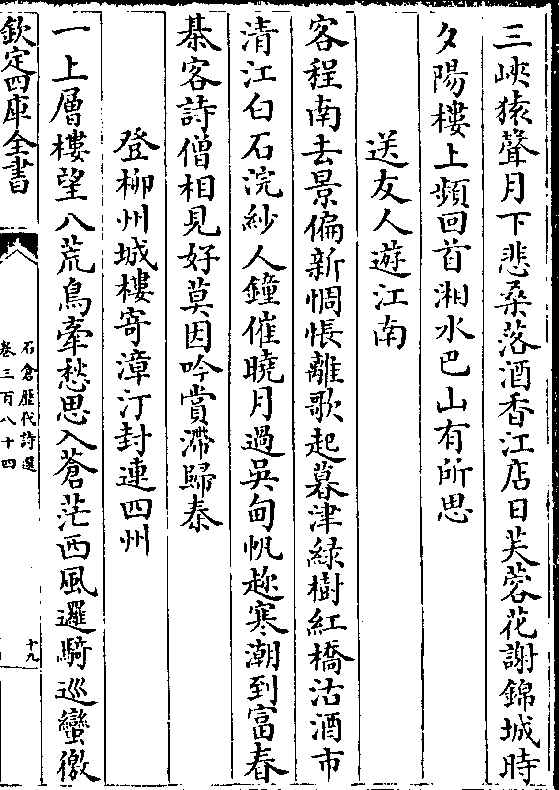 三峽猿聲月下悲桑落酒香江店日芙蓉花謝錦城時
夕陽樓上頻回首湘水巴山有所思
送友人遊江南
客程南去景偏新惆悵離歌起暮津綠樹紅橋沽酒市
清江白石浣紗人鐘催曉月過吳甸帆趂寒潮到富春
棊客詩僧相見好莫因吟賞滯歸秦
登柳州城樓寄漳汀封連四州
一上層樓望八荒鳥牽愁思入蒼茫西風邏騎巡蠻徼
欽定四庫全書
石倉歷代詩選
卷三百八十四
十九